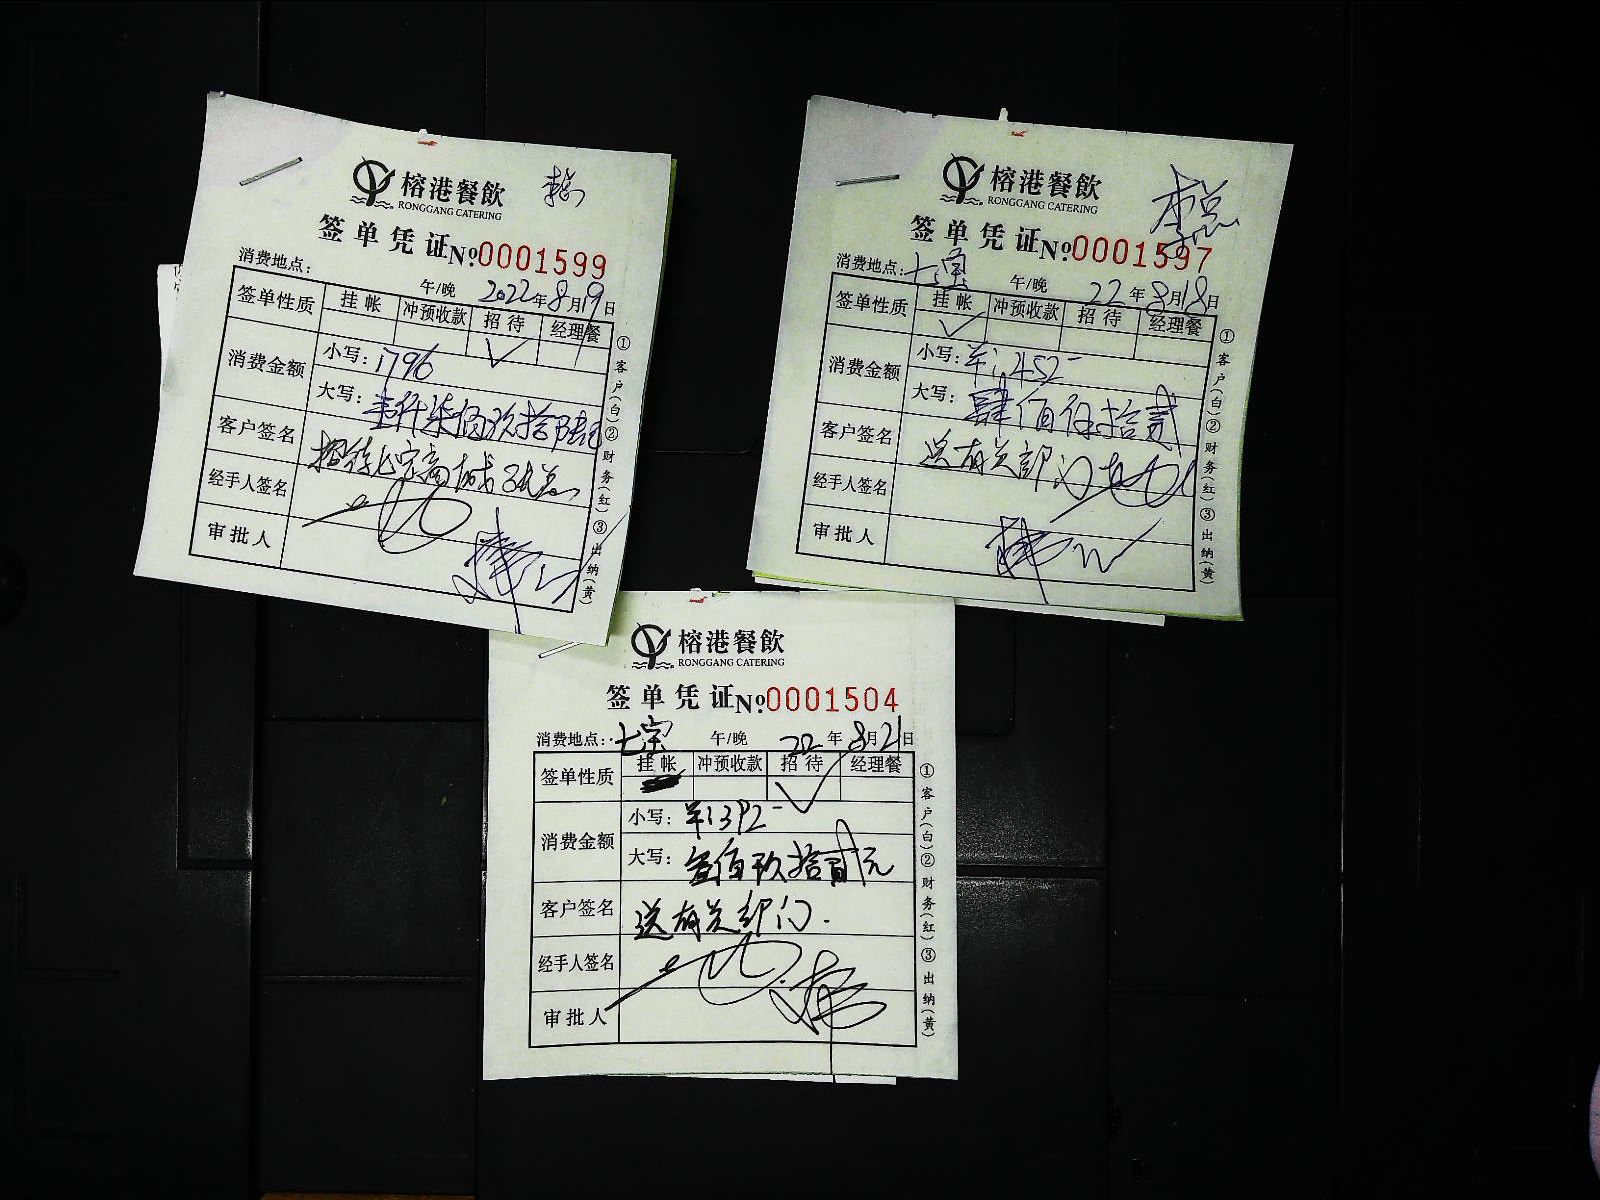 榕港餐飲
RONGGANG CATERING
李总
签单凭证 №0001599
消费地点：
午/晚 2022年8月19日
签单性质 挂帐 冲预收款 招待 经理餐
✓
消费金额 小写：1796
大写：壹仟柒佰玖拾陆元
客户签名 招待七宝商城孙总
经手人签名
审批人
①客户(白)②财务(红)③出纳(黄)
榕港餐飲
RONGGANG CATERING
李总
签单凭证 №0001597
消费地点：七宝
午/晚 22年8月18日
签单性质 挂帐 冲预收款 招待 经理餐
✓
消费金额 小写：￥:452-
大写：肆佰伍拾贰
客户签名 送有关部门
经手人签名
审批人
①客户(白)②财务(红)③出纳(黄)
榕港餐飲
RONGGANG CATERING
签单凭证 №0001504
消费地点：七宝
午/晚 22年8月21日
签单性质 挂帐 冲预收款 招待 经理餐
✓
消费金额 小写：￥:392-
大写：叁佰玖拾贰元
客户签名 送有关部门.
经手人签名
审批人
①客户(白)②财务(红)③出纳(黄)